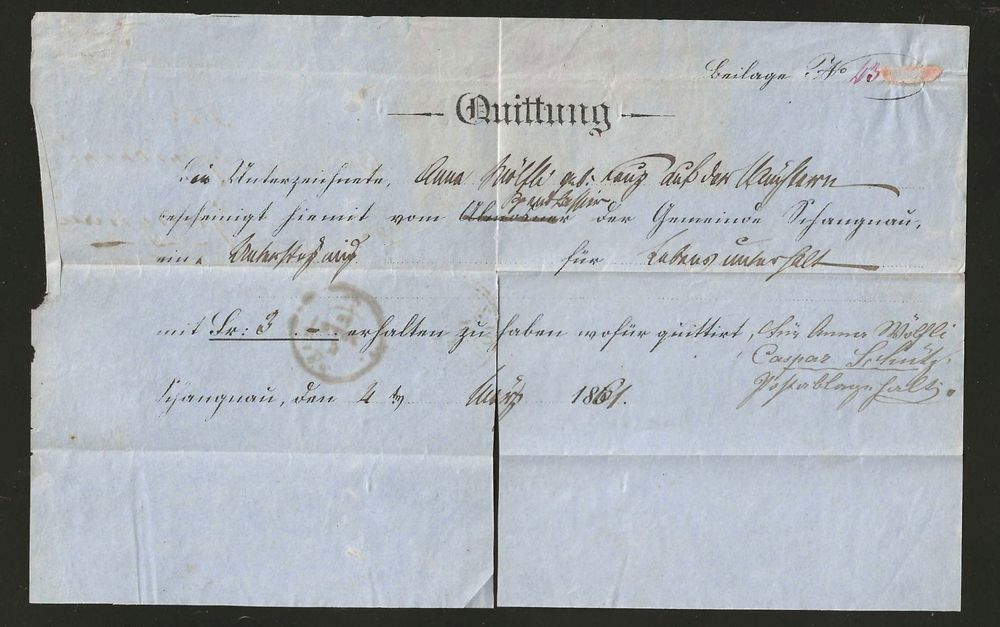 Beilage No 13
Quittung
Die Unterzeichnete, Anna Wölfli geb. auf der
Spendkassier
bescheinigt hiemit vom Almosner der Gemeinde Schangnau,
eine Unterstützung für Lebensunterhalt
mit Fr: 3 . – . erhalten zu haben wofür quittirt, Für Anna Wölfli
Caspar Schütz
Postablagehalter.
Schangnau, den 4 März 1861.